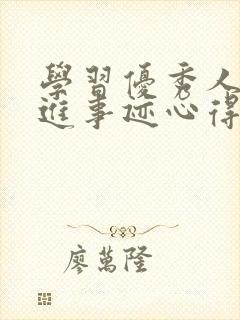 學習優秀人
進事迹心得
廖萬隆